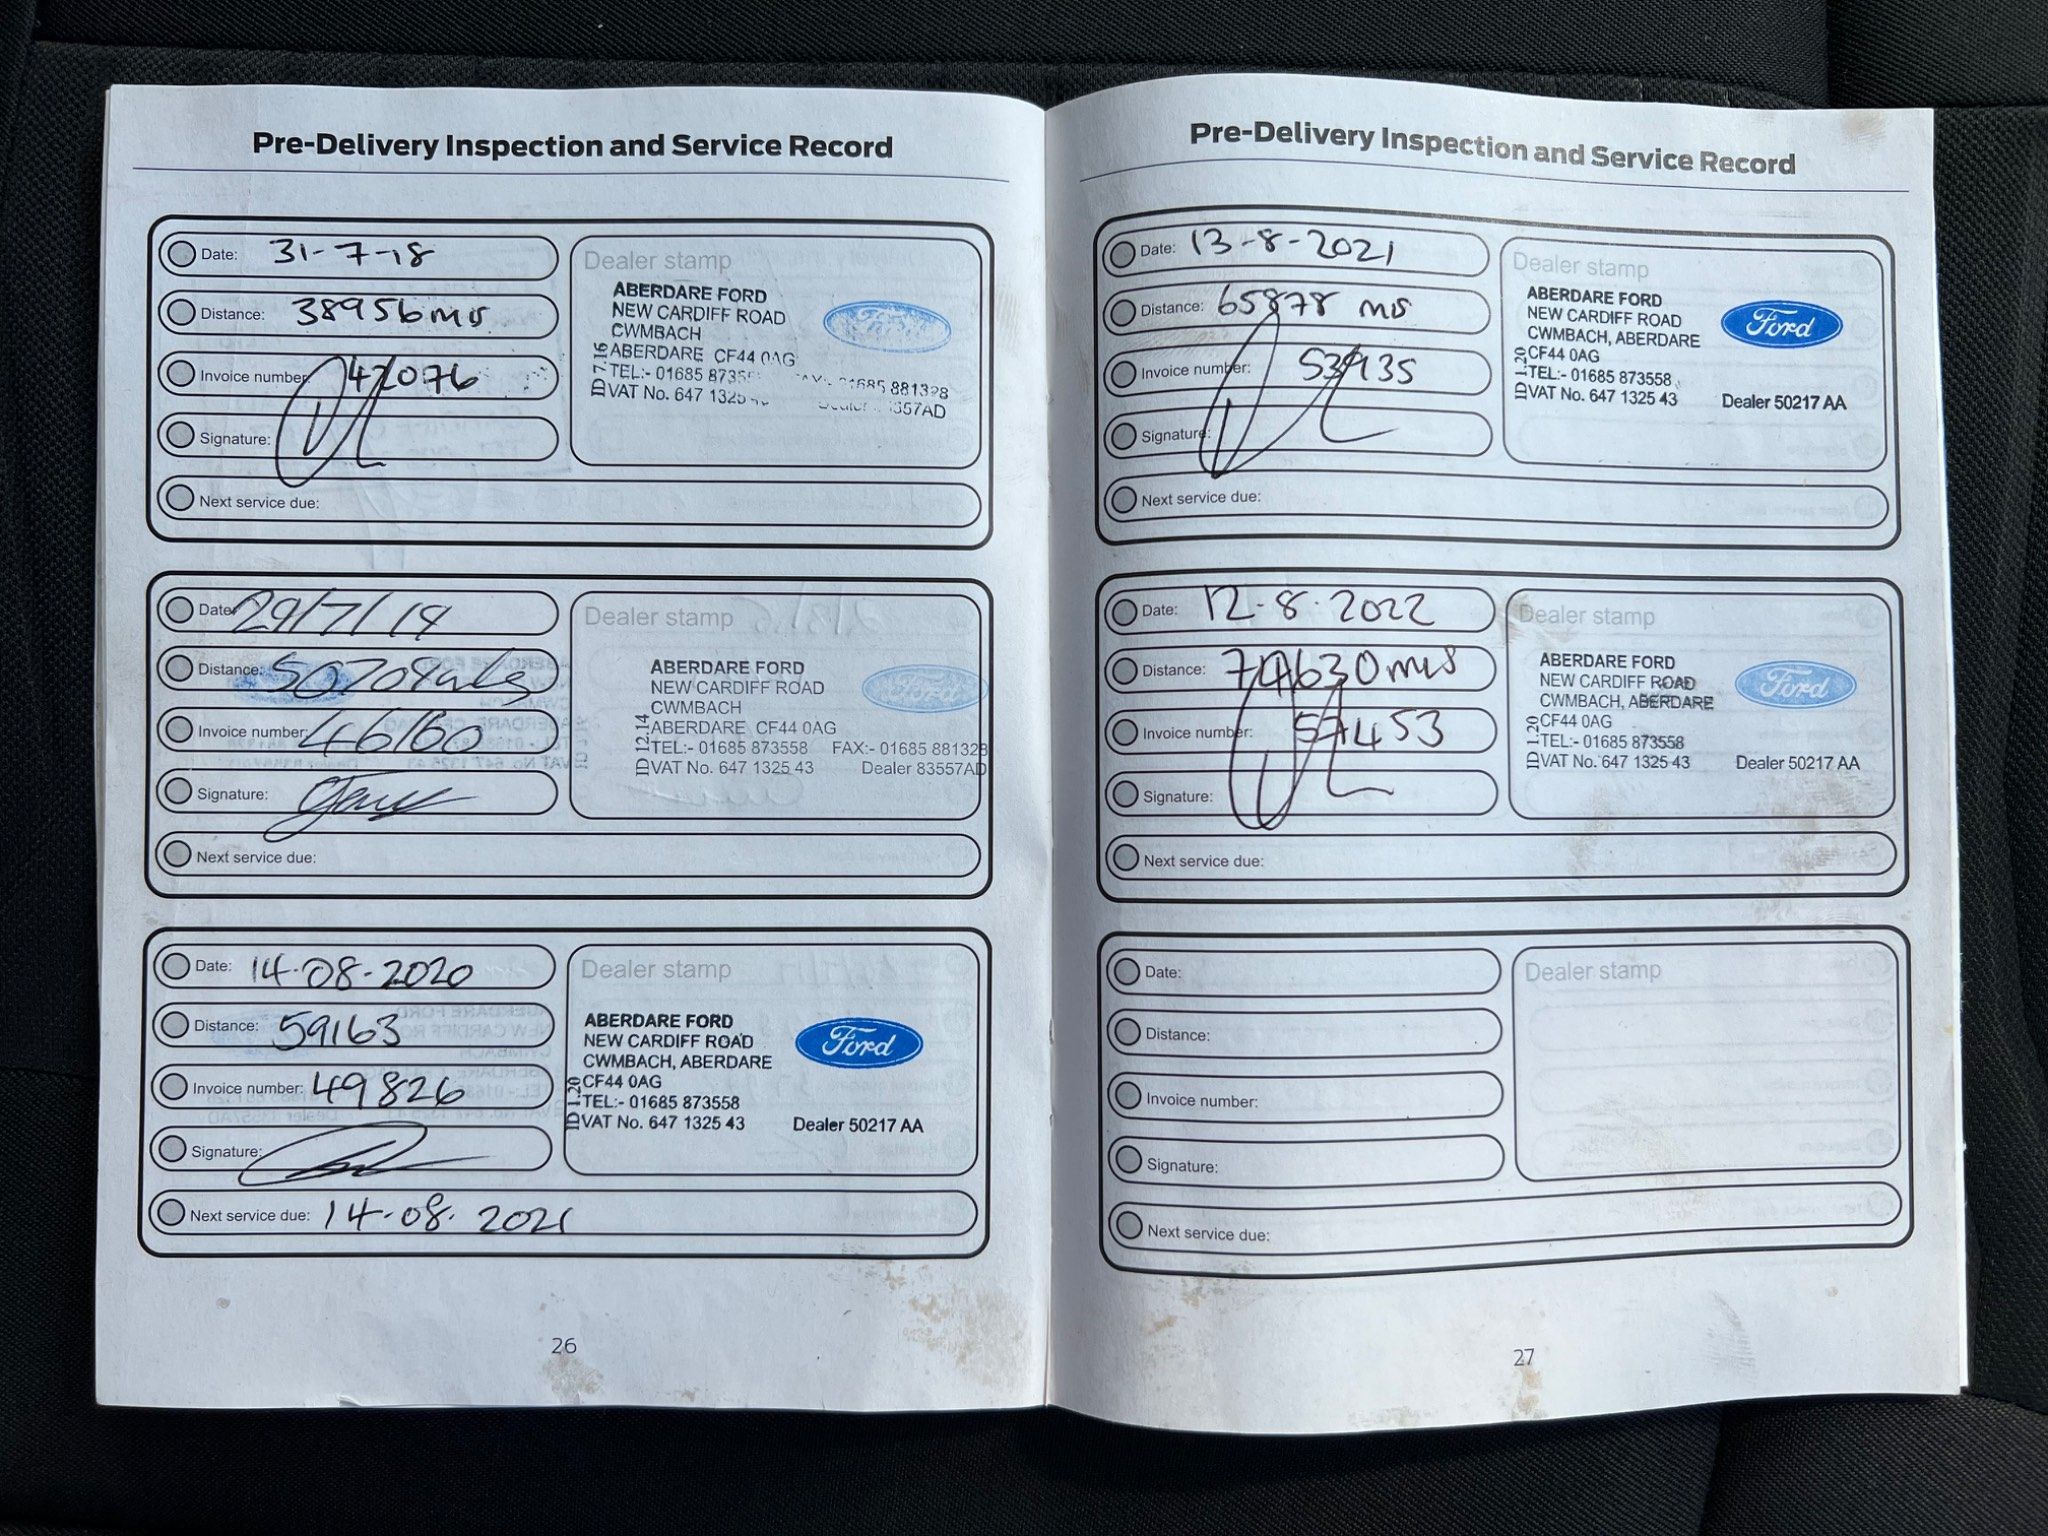 Pre-Delivery Inspection and Service Record
Date: 31-7-18
Distance: 38956 mls
Invoice number: 42076
Signature:
Next service due:
Dealer stamp
ABERDARE FORD
NEW CARDIFF ROAD
CWMBACH
ABERDARE CF44 0AG
TEL:- 01685 881328
VAT No. 647 1325
ID 7.16
Ford
Date: 29/7/19
Distance: 50708 mls
Invoice number: 46160
Signature:
Next service due:
Dealer stamp
ABERDARE FORD
NEW CARDIFF ROAD
CWMBACH
ABERDARE CF44 0AG
TEL:- 01685 873558 FAX:- 01685 881328
VAT No. 647 1325 43 Dealer 83557AD
ID 12.14
Ford
Date: 14-08-2020
Distance: 59163
Invoice number: 49826
Signature:
Next service due: 14-08-2021
Dealer stamp
ABERDARE FORD
NEW CARDIFF ROAD
CWMBACH, ABERDARE
CF44 0AG
TEL:- 01685 873558
VAT No. 647 1325 43 Dealer 50217 AA
ID 1.20
Ford
26
Pre-Delivery Inspection and Service Record
Date: 13-8-2021
Distance: 65878 mls
Invoice number: 53935
Signature:
Next service due:
Dealer stamp
ABERDARE FORD
NEW CARDIFF ROAD
CWMBACH, ABERDARE
CF44 0AG
TEL:- 01685 873558
VAT No. 647 1325 43 Dealer 50217 AA
ID 1.20
Ford
Date: 12-8-2022
Distance: 74630 mls
Invoice number: 57453
Signature:
Next service due:
Dealer stamp
ABERDARE FORD
NEW CARDIFF ROAD
CWMBACH, ABERDARE
CF44 0AG
TEL:- 01685 873558
VAT No. 647 1325 43 Dealer 50217 AA
ID 1.20
Ford
Date:
Distance:
Invoice number:
Signature:
Next service due:
Dealer stamp
27